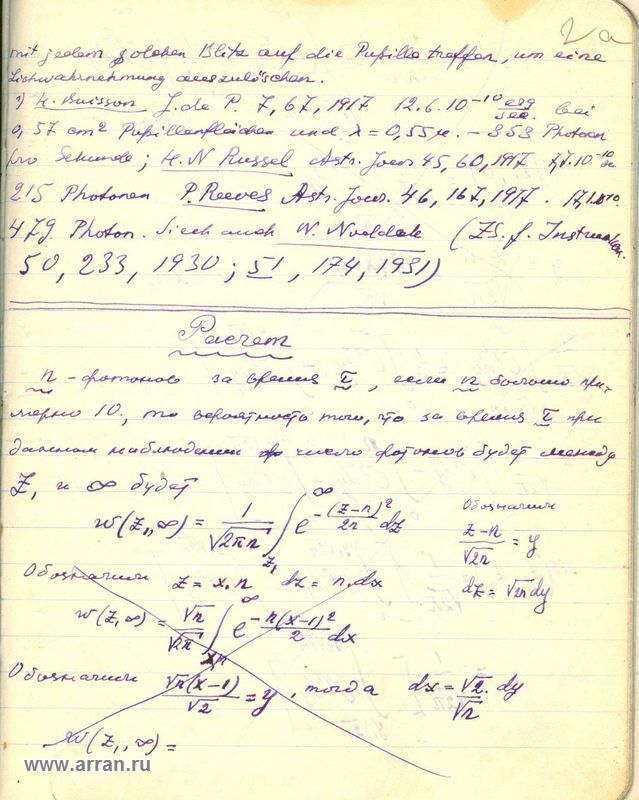 2a
mit jedem solchen Blitz auf die Pupille treffen, um eine
Lichwahrnehmung auszulöschen.
1) H. Buisson J. de P. 7, 67, 1917 12.6.10⁻¹⁰ erg/sec. bei
0,57 cm² Pupillenflächen und λ = 0,55 μ. – 353 Photonen
pro Sekunde; H. N Russel Astr. Jour 45, 60, 1917 7,7.10⁻¹⁰
215 Photonen P. Reeves Astr. Jour. 46, 167, 1917. 17,1.10⁻¹⁰.
479. Photon. Siech auch (ZS. f. Instrumen.
50, 233, 1930; 51, 174, 1931)
Расчет
n - фотонов за время τ, если n больше при-
мерно 10, то вероятность того, что за время τ при
данном наблюдении число фотонов будет между
Z₁ и ∞ будет
w(Z₁, ∞) = 1/√2πn ∫_{Z₁}^{∞} e^{-(z-n)²/2n} dz
Обозначим
(z-n)/√2n = y
dz = √2n dy
Обозначим z = x.n dz = n.dx
w(Z, ∞) = √n/√2π ∫_{xn}^{∞} e^{-n(x-1)²/2} dx
Обозначим √n(x-1)/√2 = y, тогда dx = √2/√n . dy
w(Z₁, ∞) =
www.arran.ru